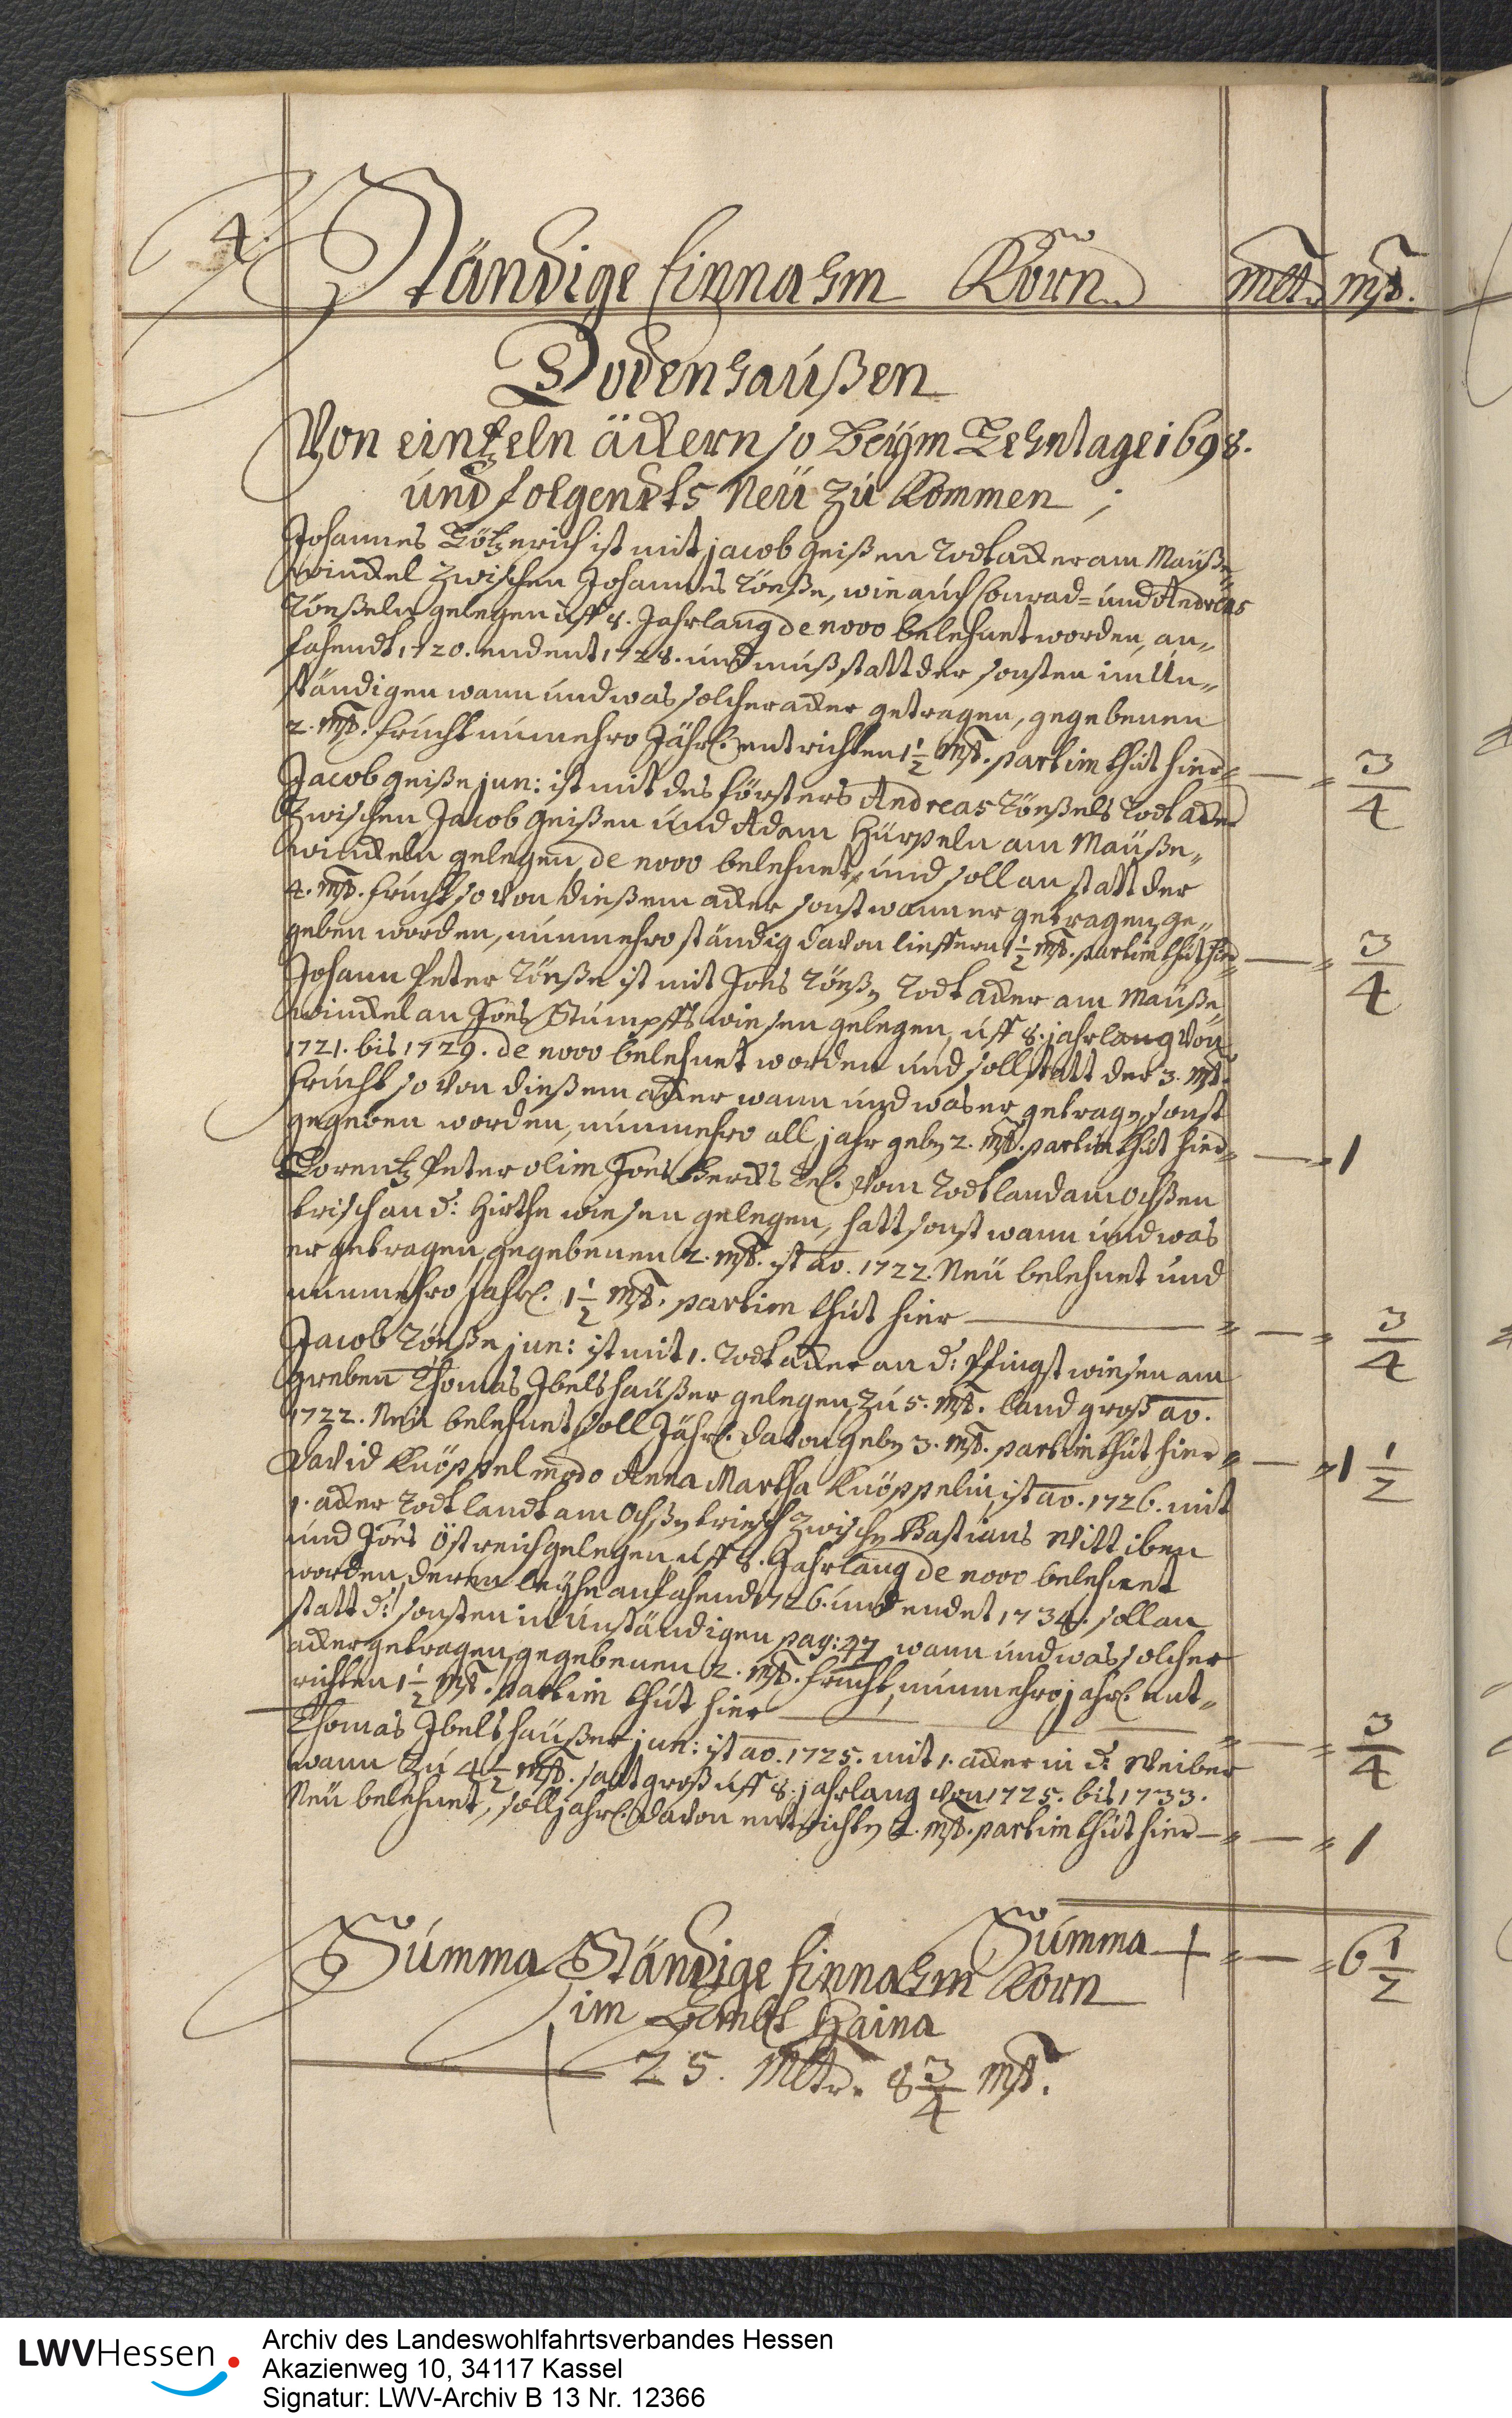 4.
Ständige Einnahm Korn Mttr. Mß.
Dodenhaußen
Von eintzeln äckern so beÿm Lehntage 1698.
und folgendts Neü zu kommen ;
Johannes Götzerich ist mit Jacob Geißen Rodtacker am Mäuße„
winckel zwischen Johannes Dönße, wie auch Conrad= und Andreas
Dönßeln gelegen uff 8. Jahrlang de novo belehnet worden, an„
fahendt 1720. endent 1728. und muß statt der sonsten im Un„
ständigen wann und was solcher acker getragen, gegebenen
2. Mß. Frucht nunmehro Jährl. entrichten 1 1/2 Mß. partim thut hier = — = 3/4
Jacob Geiße jun: ist mit des Försters Andreas Dönßels Rodtacker
Zwischen Jacob Geißen und Adam Hürpeln am Mäuße„
winckeln gelegen, de novo belehnet, und soll an statt der
4. Mß. Frucht so von dießem acker sonst wann er getragen, ge„
geben worden, nunmehro ständig davon lieffern 1 1/2 Mß. partim thut hier = — = 3/4
Johann Peter Dönße ist mit Joes Dönßen Rodtacker am Mäuße„
winckel an Joes Stumpffs wiesen gelegen, uff 8. jahrlang von
1721. bis 1729. de novo belehnet worden und soll statt der 3. Mß.
Frucht so von dießem acker wann und was er getragen, sonst
gegeben worden, nunmehro all jahr geben 2. Mß. partim thut hier = — = 1
Lorentz Peter olim Joes Vom Rodtland am Ochßen
triesch an d: Hirthe wiesen gelegen, hatt sonst wann und was
er getragen, gegebenen 2. Mß. ist ao. 1722. Neü belehnet und
nunmehro Jahrl. 1 1/2 Mß. partim thut hier = — = 3/4
Jacob Dönße jun: ist mit 1. Rodtacker an d: Pfingstwiesen am
greben Thomas Ibelshäußer gelegen, zu 5. Mß. land groß ao.
1722. Neü belehnet, soll Jährl. davon geben 3. Mß. partim thut hier = — = 1 1/2
David Knöppel modo Anna Martha Knöppelin, ist ao. 1726. mit
1. acker Rodtlandt am Ochßen triesch zwischen Bastians Wittiben
und Joes Östreich gelegen, uff 8. Jahrlang de novo belehnet
worden, deren leÿhe anfahend 1726. und endet 1734. soll an
statt d: sonsten in Unständigen pag: 47 wann und was solcher
acker getragen, gegebenen 2. Mß. Frucht, nunmehro jahrl. ent„
richten 1 1/2 Mß. partim thut hier = — = 3/4
Thomas Ibelshäußer jun: ist ao. 1725. mit 1. acker in d: Weiber
wann zu 4 1/2 Mß. saat groß uff 8. jahrlang von 1725. bis 1733.
Neü belehnet, soll jahrl. davon entrichten 2. Mß. partim thut hier = — = 1
Summa = — = 6 1/2
Summa Ständige Einnahm Korn
im Ambt Haina
25. Mttr. 8 3/4 Mß.
LWVHessen
Archiv des Landeswohlfahrtsverbandes Hessen
Akazienweg 10, 34117 Kassel
Signatur: LWV-Archiv B 13 Nr. 12366